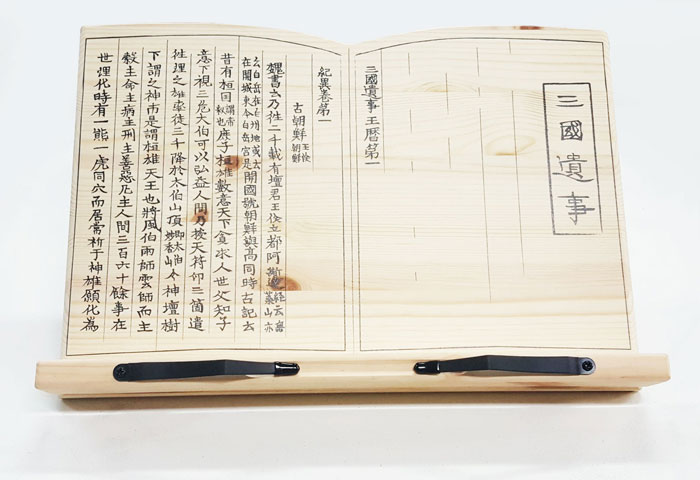 三國遺事
三國遺事 王曆第一
紀異卷第一
古朝鮮 王儉朝鮮
魏書云乃徃二千載有壇君王儉立都阿斯達 經云無葉山亦
云白岳在白州地或云在開城東今白岳宮是 開國號朝鮮與高同時古記云
昔有桓国 謂帝釋也 庶子桓雄數意天下貪求人世父知子
意下視三危大伯可以弘益人間乃授天符印三箇遣
徃理之雄率徒三千降於太伯山頂 即太伯今妙香山 神壇樹
下謂之神市是謂桓雄天王也將風伯雨師雲師而主
穀主命主病主刑主善惡凡主人間三百六十餘事在
世理化時有一熊一虎同穴而居常祈于神雄願化為